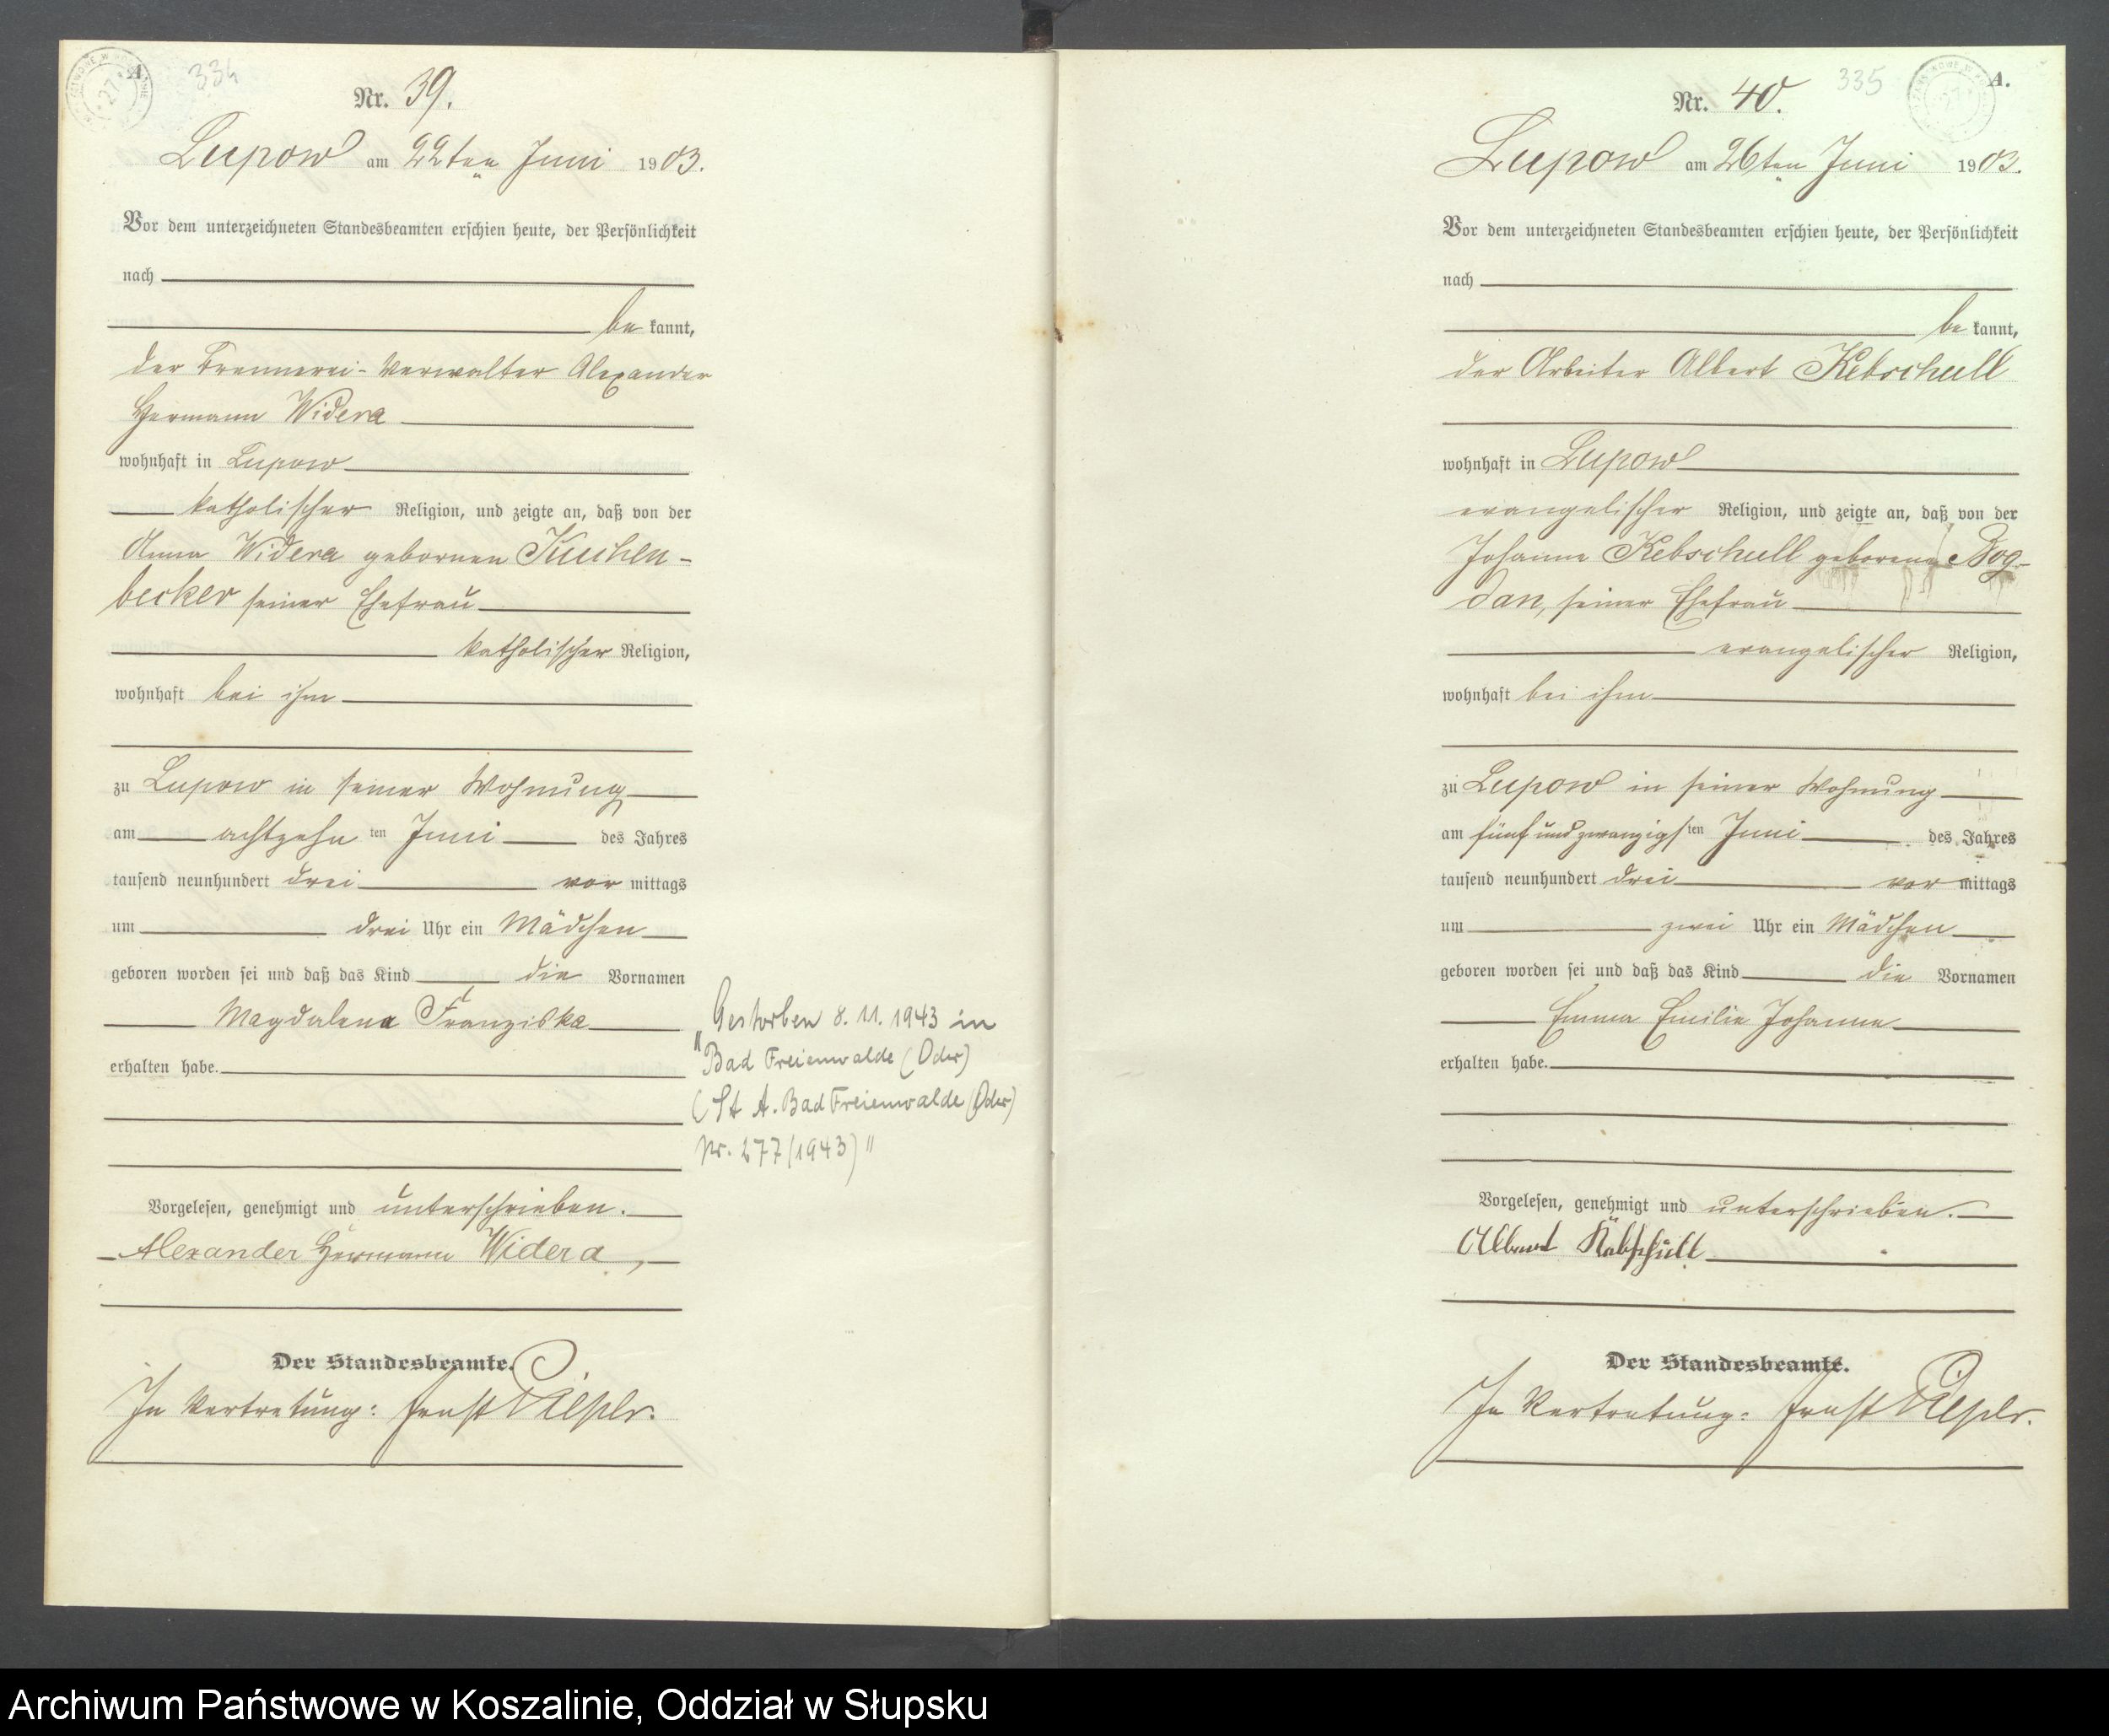 A
334
Nr. 39.
Lupow am 22ten Juni 1903.
Vor dem unterzeichneten Standesbeamten erschien heute, der Persönlichkeit
nach
be kannt,
der Brennerei-Verwalter Alexander
Hermann Widera
wohnhaft in Lupow
katholischer Religion, und zeigte an, daß von der
Anna Widera gebornen Kuchen-
becker seiner Ehefrau
katholischer Religion,
wohnhaft bei ihm
zu Lupow in seiner Wohnung
am achtzehn ten Juni des Jahres
tausend neunhundert drei vor mittags
um drei Uhr ein Mädchen
geboren worden sei und daß das Kind die Vornamen
Magdalena Franziska
erhalten habe.
"Gestorben 8.11.1943 in
Bad Freienwalde (Oder)
(St A. Bad Freienwalde (Oder)
Nr. 277/1943)"
Vorgelesen, genehmigt und unterschrieben.
Alexander Hermann Widera,
Der Standesbeamte.
In Vertretung: Ernst
335
A.
Nr. 40.
Lupow am 26ten Juni 1903.
Vor dem unterzeichneten Standesbeamten erschien heute, der Persönlichkeit
nach
be kannt,
der Arbeiter Albert Kebschull
wohnhaft in Lupow
evangelischer Religion, und zeigte an, daß von der
Johanna Kebschull geborene Bog-
dan, seiner Ehefrau
evangelischer Religion,
wohnhaft bei ihm
zu Lupow in seiner Wohnung
am fünf und zwanzigs ten Juni des Jahres
tausend neunhundert drei vor mittags
um zwei Uhr ein Mädchen
geboren worden sei und daß das Kind die Vornamen
Emma Emilie Johanna
erhalten habe.
Vorgelesen, genehmigt und unterschrieben.
Albert Käbschull
Der Standesbeamte.
In Vertretung: Ernst
Archiwum Państwowe w Koszalinie, Oddział w Słupsku